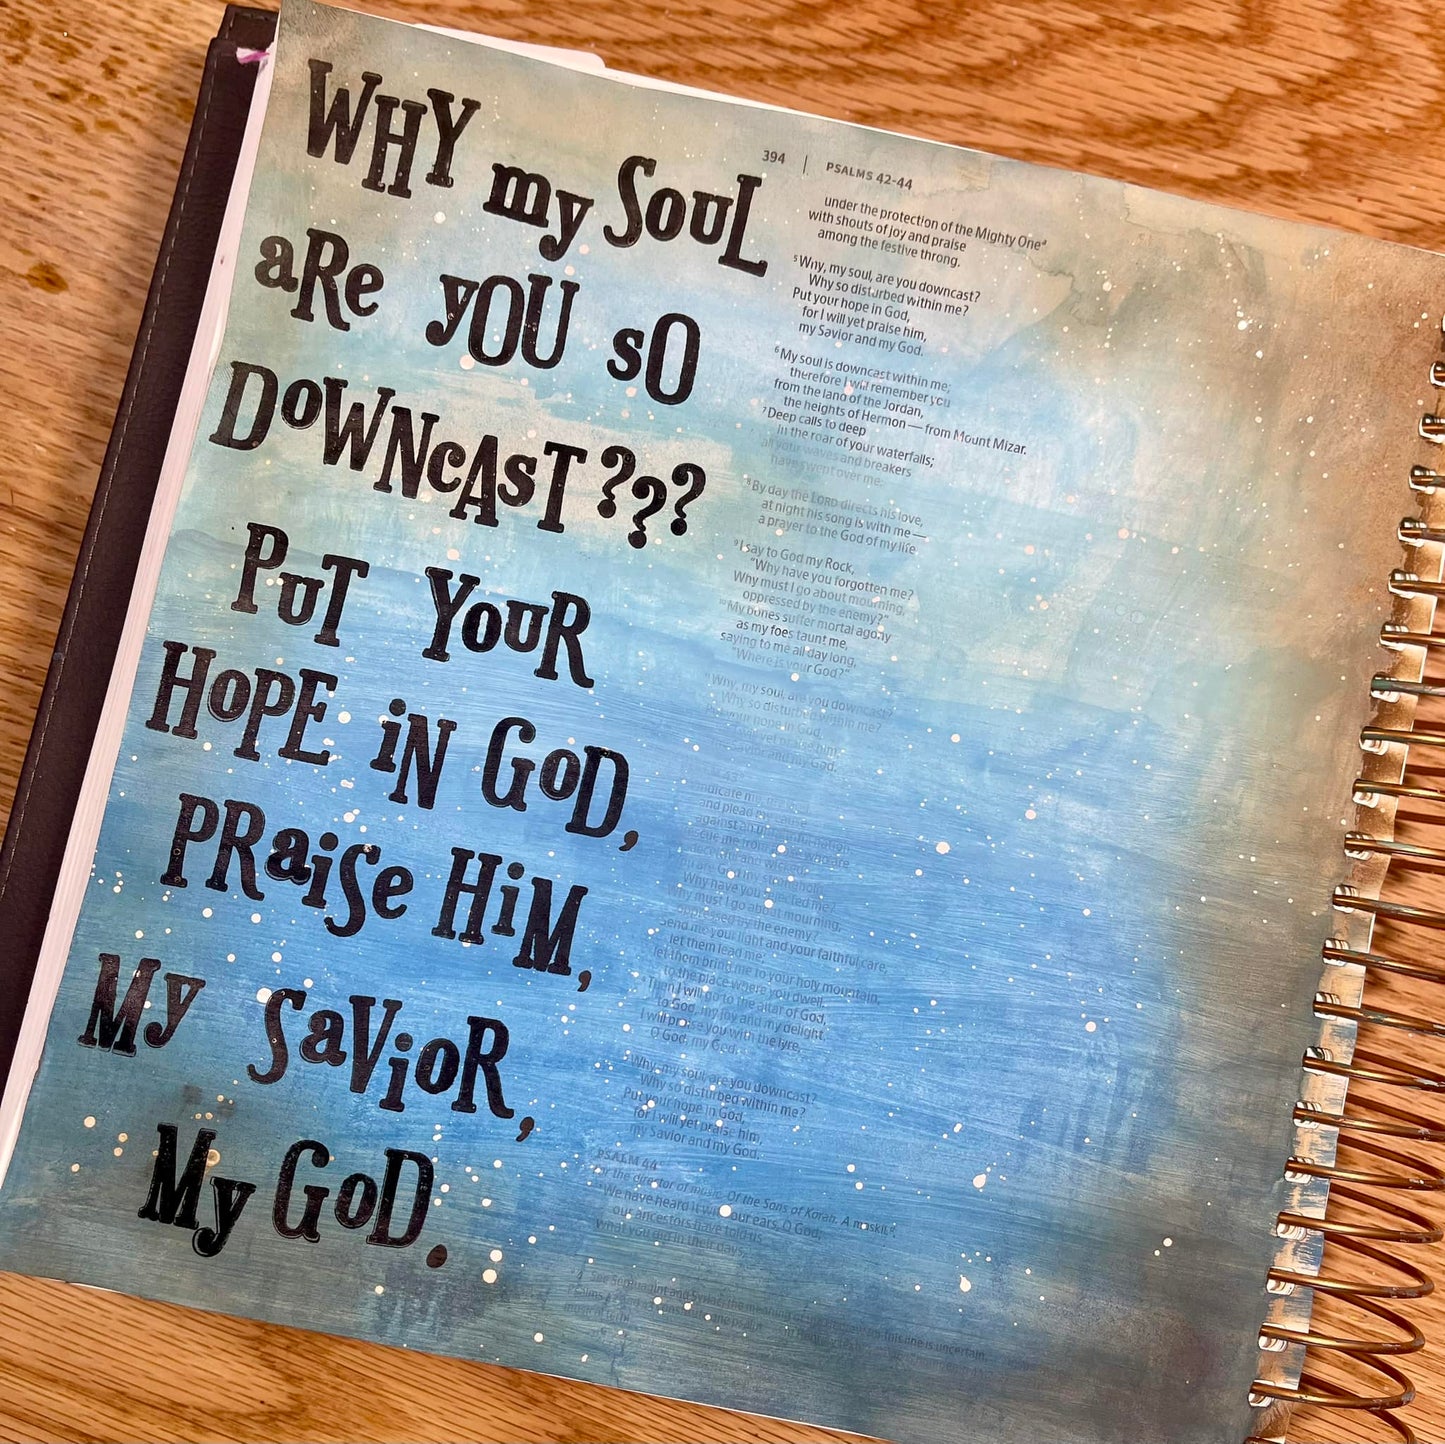 WHY my SOUL
aRe yOU sO
DoWNcAsT???
PuT YouR
HoPE iN GoD,
PRaiSe HiM,
My SaVioR,
My GoD.
394 | PSALMS 42-44
under the protection of the Mighty One
with shouts of joy and praise
among the festive throng.
5 Why, my soul, are you downcast?
Why so disturbed within me?
Put your hope in God,
for I will yet praise him,
my Savior and my God.
6 My soul is downcast within me;
therefore I will remember you
from the land of the Jordan,
the heights of Hermon — from Mount Mizar.
7 Deep calls to deep
in the roar of your waterfalls;
all your waves and breakers
have swept over me.
8 By day the LORD directs his love,
at night his song is with me —
a prayer to the God of my life.
9 I say to God my Rock,
"Why have you forgotten me?
Why must I go about mourning,
oppressed by the enemy?"
10 My bones suffer mortal agony
as my foes taunt me,
saying to me all day long,
"Where is your God?"
11 Why, my soul, are you downcast?
Why so disturbed within me?
Put your hope in God,
for I will yet praise him,
my Savior and my God.
my God,
and plead my cause
against an unfaithful nation.
who are
God my stronghold.
Why have you rejected me?
Why must I go about mourning,
oppressed by the enemy?
Send me your light and your faithful care,
let them lead me;
let them bring me to your holy mountain,
to the place where you dwell.
Then I will go to the altar of God,
to God, my joy and my delight.
I will praise you with the lyre,
O God, my God.
5 Why, my soul, are you downcast?
Why so disturbed within me?
Put your hope in God,
for I will yet praise him,
my Savior and my God.
PSALM 44
For the director of music. Of the Sons of Korah. A maskil.
We have heard it with our ears, O God;
our ancestors have told us
what you did in their days,
See Septuagint and Syriac; the meaning of this line is uncertain.